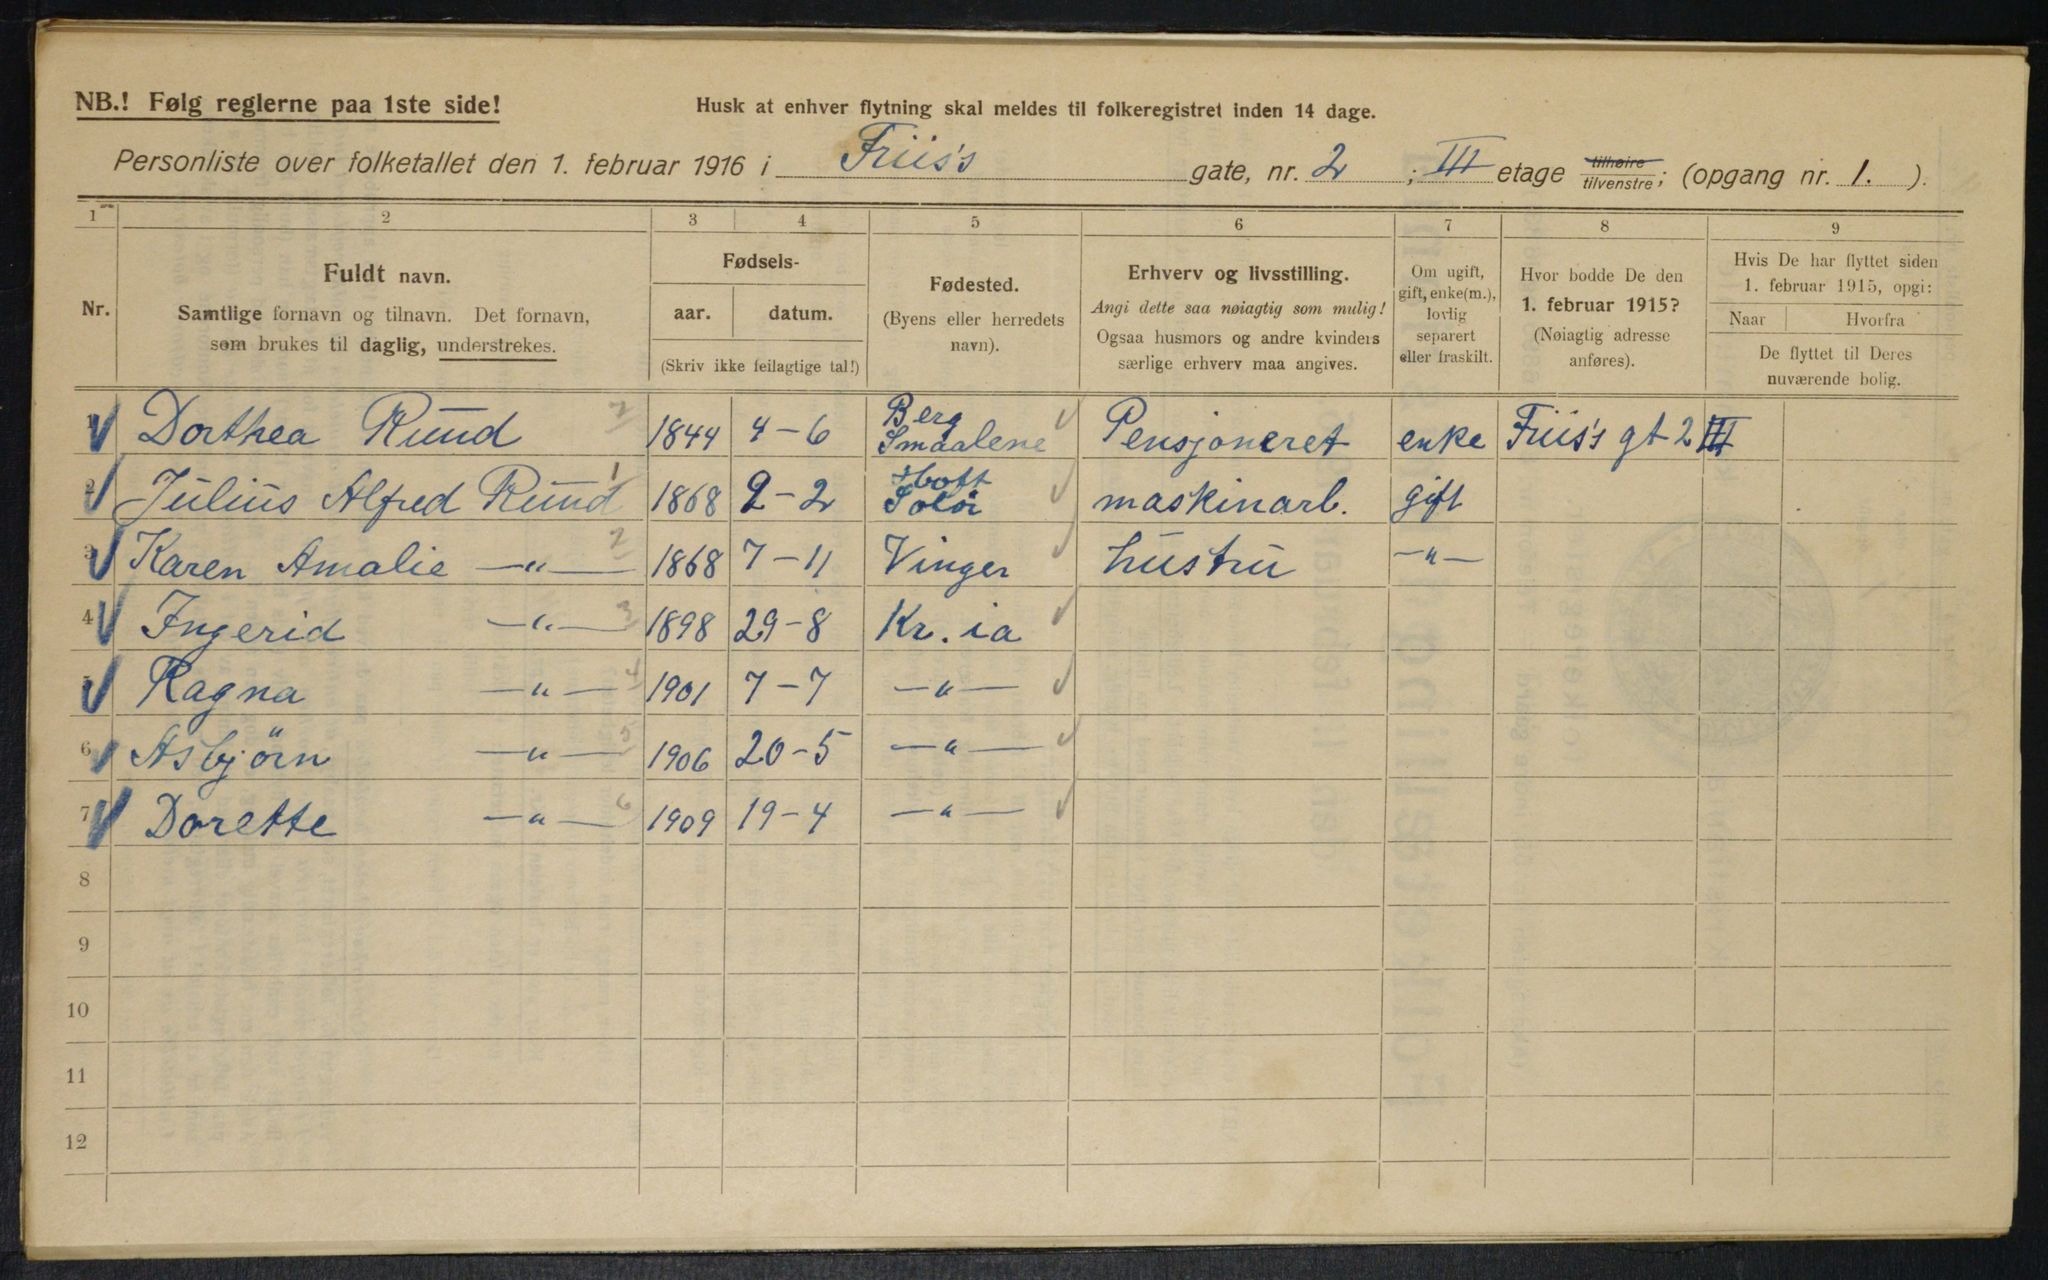 NB.! Følg reglerne paa 1ste side!
Husk at enhver flytning skal meldes til folkeregistret inden 14 dage.
Personliste over folketallet den 1. februar 1916 i Friis's gate, nr. 2 ; III etage tilhøire/tilvenstre; (opgang nr. 1. ).
1 2 3 4 5 6 7 8 9
Nr.
Fuldt navn.
Samtlige fornavn og tilnavn. Det fornavn,
som brukes til daglig, understrekes.
Fødsels-
aar. datum.
(Skriv ikke feilagtige tal!)
Fødested.
(Byens eller herredets
navn).
Erhverv og livsstilling.
Angi dette saa nøiagtig som mulig!
Ogsaa husmors og andre kvinders
særlige erhverv maa angives.
Om ugift,
gift, enke(m.),
lovlig
separert
eller fraskilt.
Hvor bodde De den
1. februar 1915?
(Nøiagtig adresse
anføres).
Hvis De har flyttet siden
1. februar 1915, opgi:
Naar Hvorfra
De flyttet til Deres
nuværende bolig.
1 Dorthea Ruud 2 1844 4-6 Berg Smaalene Pensjoneret enke Friis's gt 2 III
2 Julius Alfred Ruud 1 1868 2-2 Solör maskinarb. gift
3 Karen Amalie —"— 2 1868 7-11 Vinger hustru —"—
4 Ingerid —"— 3 1898 29-8 Kr.ia
5 Ragna —"— 4 1901 7-7 —"—
6 Asbjörn —"— 5 1906 20-5 —"—
7 Dorette —"— 6 1909 19-4 —"—
8
9
10
11
12